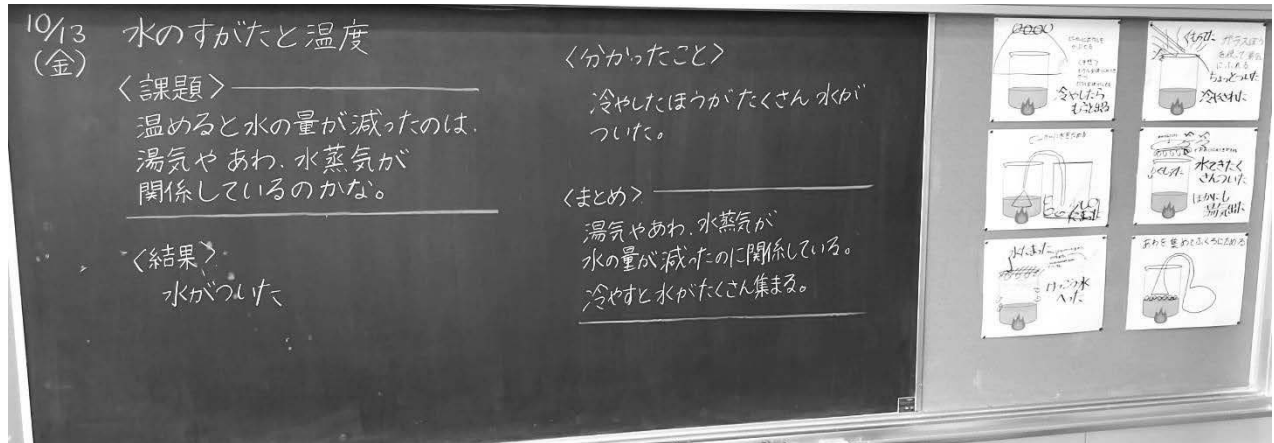 10/13
(金)
水のすがたと温度
<課題>
温めると水の量が減ったのは、
湯気や あわ、水蒸気が
関係しているのかな。
<結果>
水がついた
<分かったこと>
冷やしたほうが たくさん 水が
ついた。
<まとめ>
湯気やあわ、水蒸気が
水の量が減ったのに関係している。
冷やすと水がたくさん集まる。
冷やしたら
くもった
ガラスぼう
ちょっとついた
水てきたく
さんついた
ほかにも
湯気出た
水たまった
けっこう水
へった
あわを集めてふくろにためる